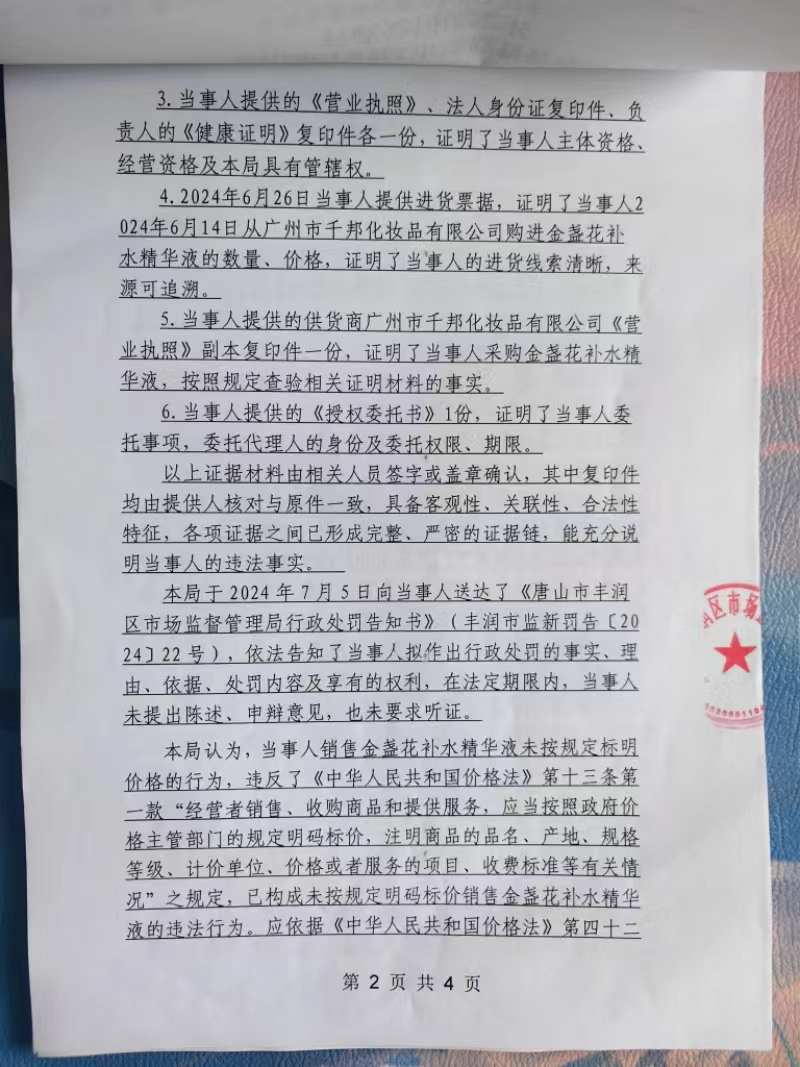 3.当事人提供的《营业执照》、法人身份证复印件、负
责人的《健康证明》复印件各一份，证明了当事人主体资格、
经营资格及本局具有管辖权。
4.2024年6月26日当事人提供进货票据，证明了当事人2
024年6月14日从广州市千邦化妆品有限公司购进金盏花补
水精华液的数量、价格，证明了当事人的进货线索清晰，来
源可追溯。
5.当事人提供的供货商广州市千邦化妆品有限公司《营
业执照》副本复印件一份，证明了当事人采购金盏花补水精
华液，按照规定查验相关证明材料的事实。
6.当事人提供的《授权委托书》1份，证明了当事人委
托事项，委托代理人的身份及委托权限、期限。
以上证据材料由相关人员签字或盖章确认，其中复印件
均由提供人核对与原件一致，具备客观性、关联性、合法性
特征，各项证据之间已形成完整、严密的证据链，能充分说
明当事人的违法事实。
本局于 2024 年 7 月 5 日向当事人送达了《唐山市丰润
区市场监督管理局行政处罚告知书》（丰润市监新罚告〔20
24〕22 号），依法告知了当事人拟作出行政处罚的事实、理
由、依据、处罚内容及享有的权利，在法定期限内，当事人
未提出陈述、申辩意见，也未要求听证。
本局认为，当事人销售金盏花补水精华液未按规定标明
价格的行为，违反了《中华人民共和国价格法》第十三条第
一款“经营者销售、收购商品和提供服务，应当按照政府价
格主管部门的规定明码标价，注明商品的品名、产地、规格
等级、计价单位、价格或者服务的项目、收费标准等有关情
况”之规定，已构成未按规定明码标价销售金盏花补水精华
液的违法行为。应依据《中华人民共和国价格法》第四十二
区市场
第 2 页 共 4 页